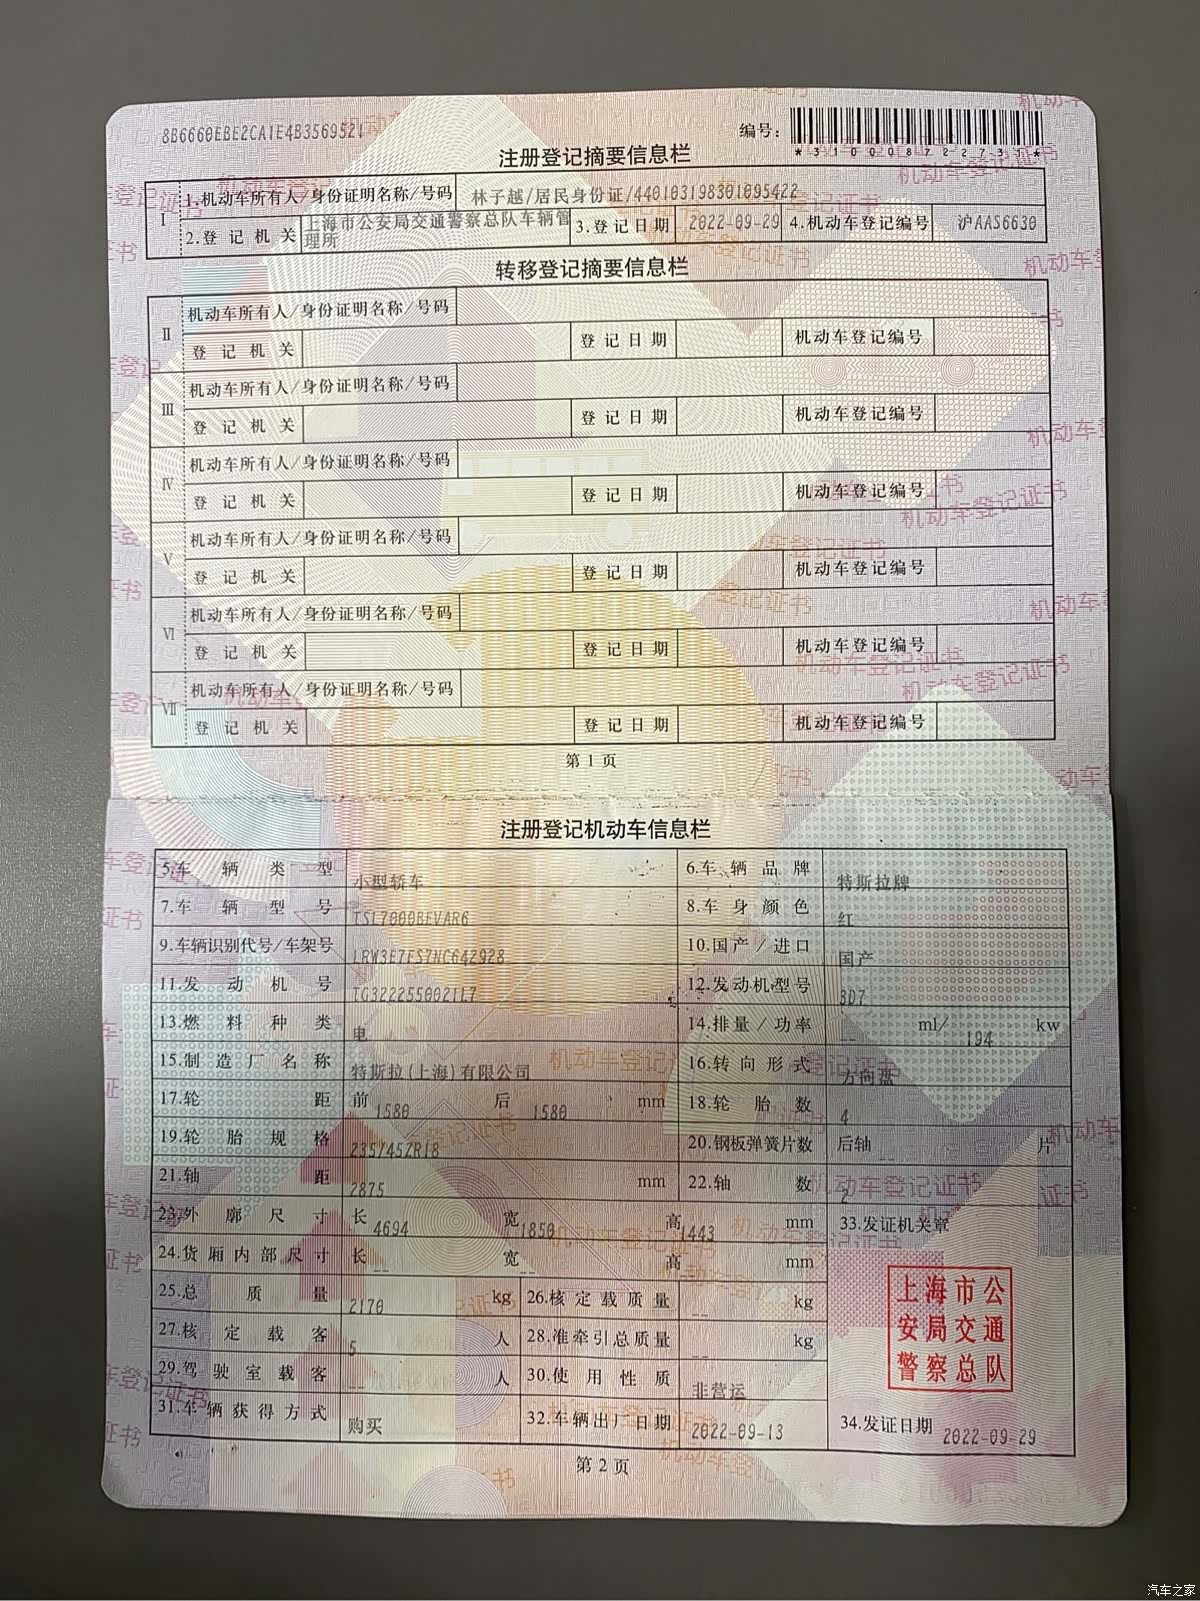 8B6660EBE2CA1E4B3569521
编号：
*310008722731*
注册登记摘要信息栏
I 1.机动车所有人/身份证明名称/号码 林子越/居民身份证/440103198301095422
2.登记机关 上海市公安局交通警察总队车辆管理所 3.登记日期 2022-09-29 4.机动车登记编号 沪AAS6630
转移登记摘要信息栏
II 机动车所有人/身份证明名称/号码
登记机关 登记日期 机动车登记编号
III 机动车所有人/身份证明名称/号码
登记机关 登记日期 机动车登记编号
IV 机动车所有人/身份证明名称/号码
登记机关 登记日期 机动车登记编号
V 机动车所有人/身份证明名称/号码
登记机关 登记日期 机动车登记编号
VI 机动车所有人/身份证明名称/号码
登记机关 登记日期 机动车登记编号
VII 机动车所有人/身份证明名称/号码
登记机关 登记日期 机动车登记编号
第1页
注册登记机动车信息栏
5.车辆类型 小型轿车 6.车辆品牌 特斯拉牌
7.车辆型号 TSL7000BEVAR6 8.车身颜色 红
9.车辆识别代号/车架号 LRW3E7FS7NC642928 10.国产/进口 国产
11.发动机号 TG3222550021L7 12.发动机型号 3D7
13.燃料种类 电 14.排量/功率 -- ml/ 194 kw
15.制造厂名称 特斯拉(上海)有限公司 16.转向形式 方向盘
17.轮距 前 1580 后 1580 mm 18.轮胎数 4
19.轮胎规格 235/45ZR18 20.钢板弹簧片数 后轴 -- 片
21.轴距 2875 mm 22.轴数 2
23.外廓尺寸 长 4694 宽 1850 高 1443 mm 33.发证机关章
24.货厢内部尺寸 长 -- 宽 -- 高 -- mm
25.总质量 2170 kg 26.核定载质量 -- kg
27.核定载客 5 人 28.准牵引总质量 -- kg
29.驾驶室载客 -- 人 30.使用性质 非营运
31.车辆获得方式 购买 32.车辆出厂日期 2022-09-13 34.发证日期 2022-09-29
上海市公
安局交通
警察总队
第2页
汽车之家